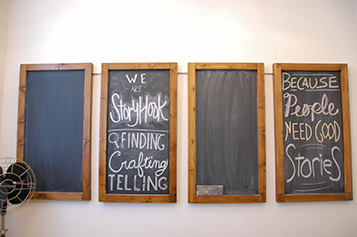 WE
ARE
StoryHook
& FINDING
Crafting
TELLING
BECAUSE
People
NEED GOOD
Stories